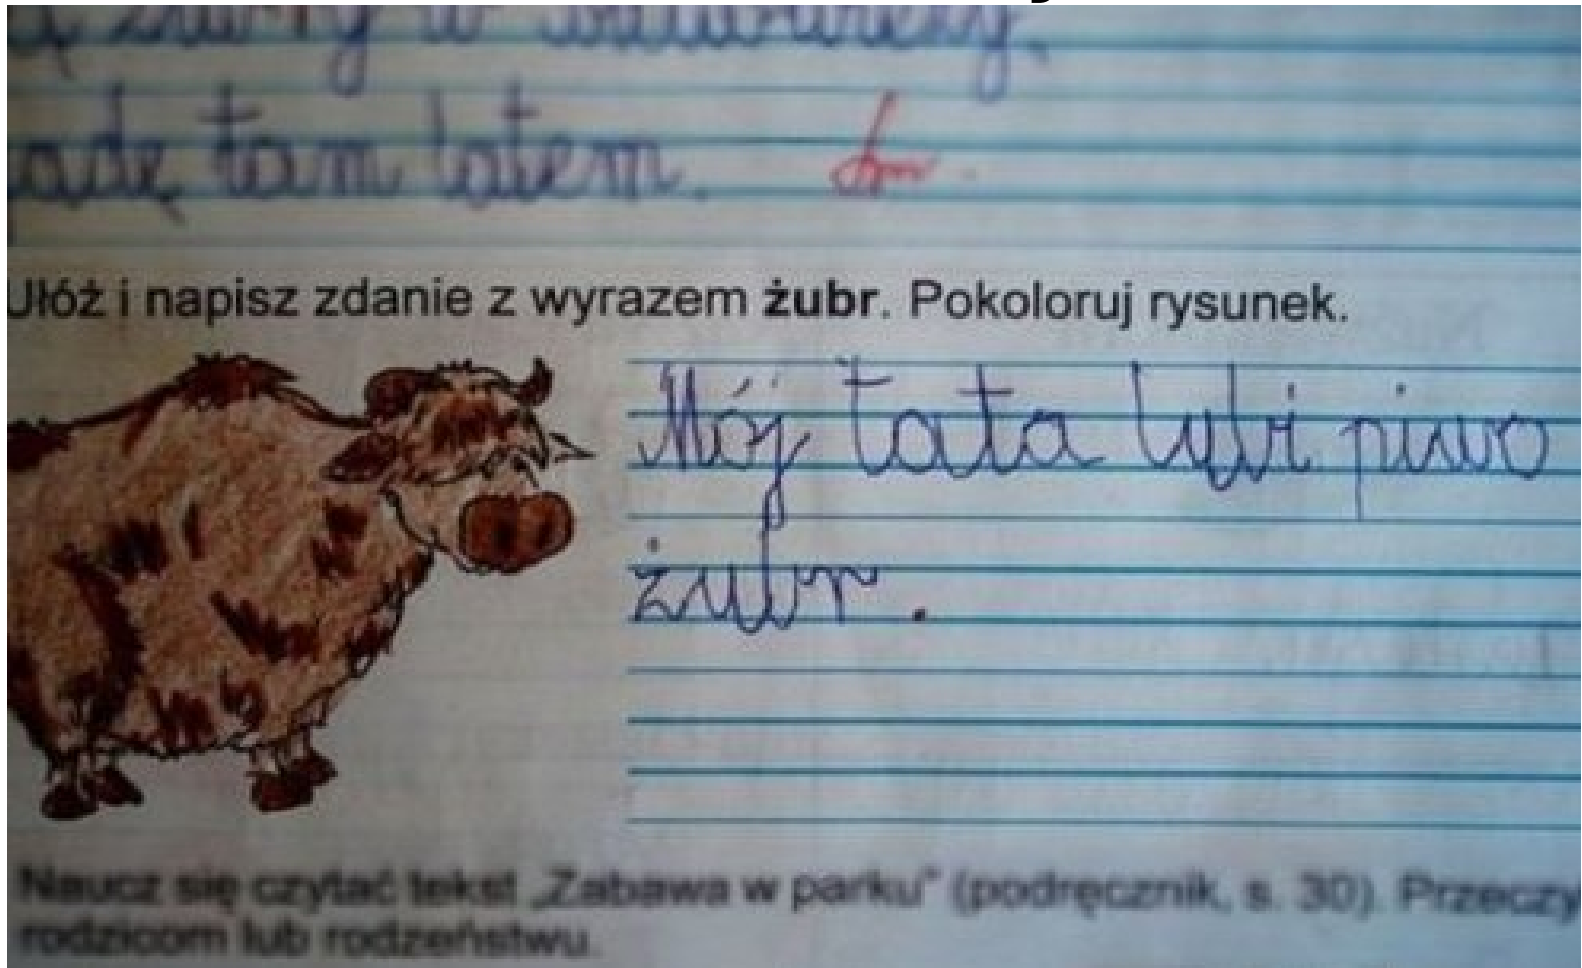 żubry w
jadę tam latem.
Ułóż i napisz zdanie z wyrazem żubr. Pokoloruj rysunek.
Mój tata lubi piwo
żubr.
Naucz się czytać tekst „Zabawa w parku” (podręcznik, s. 30). Przeczy
rodzicom lub rodzeństwu.